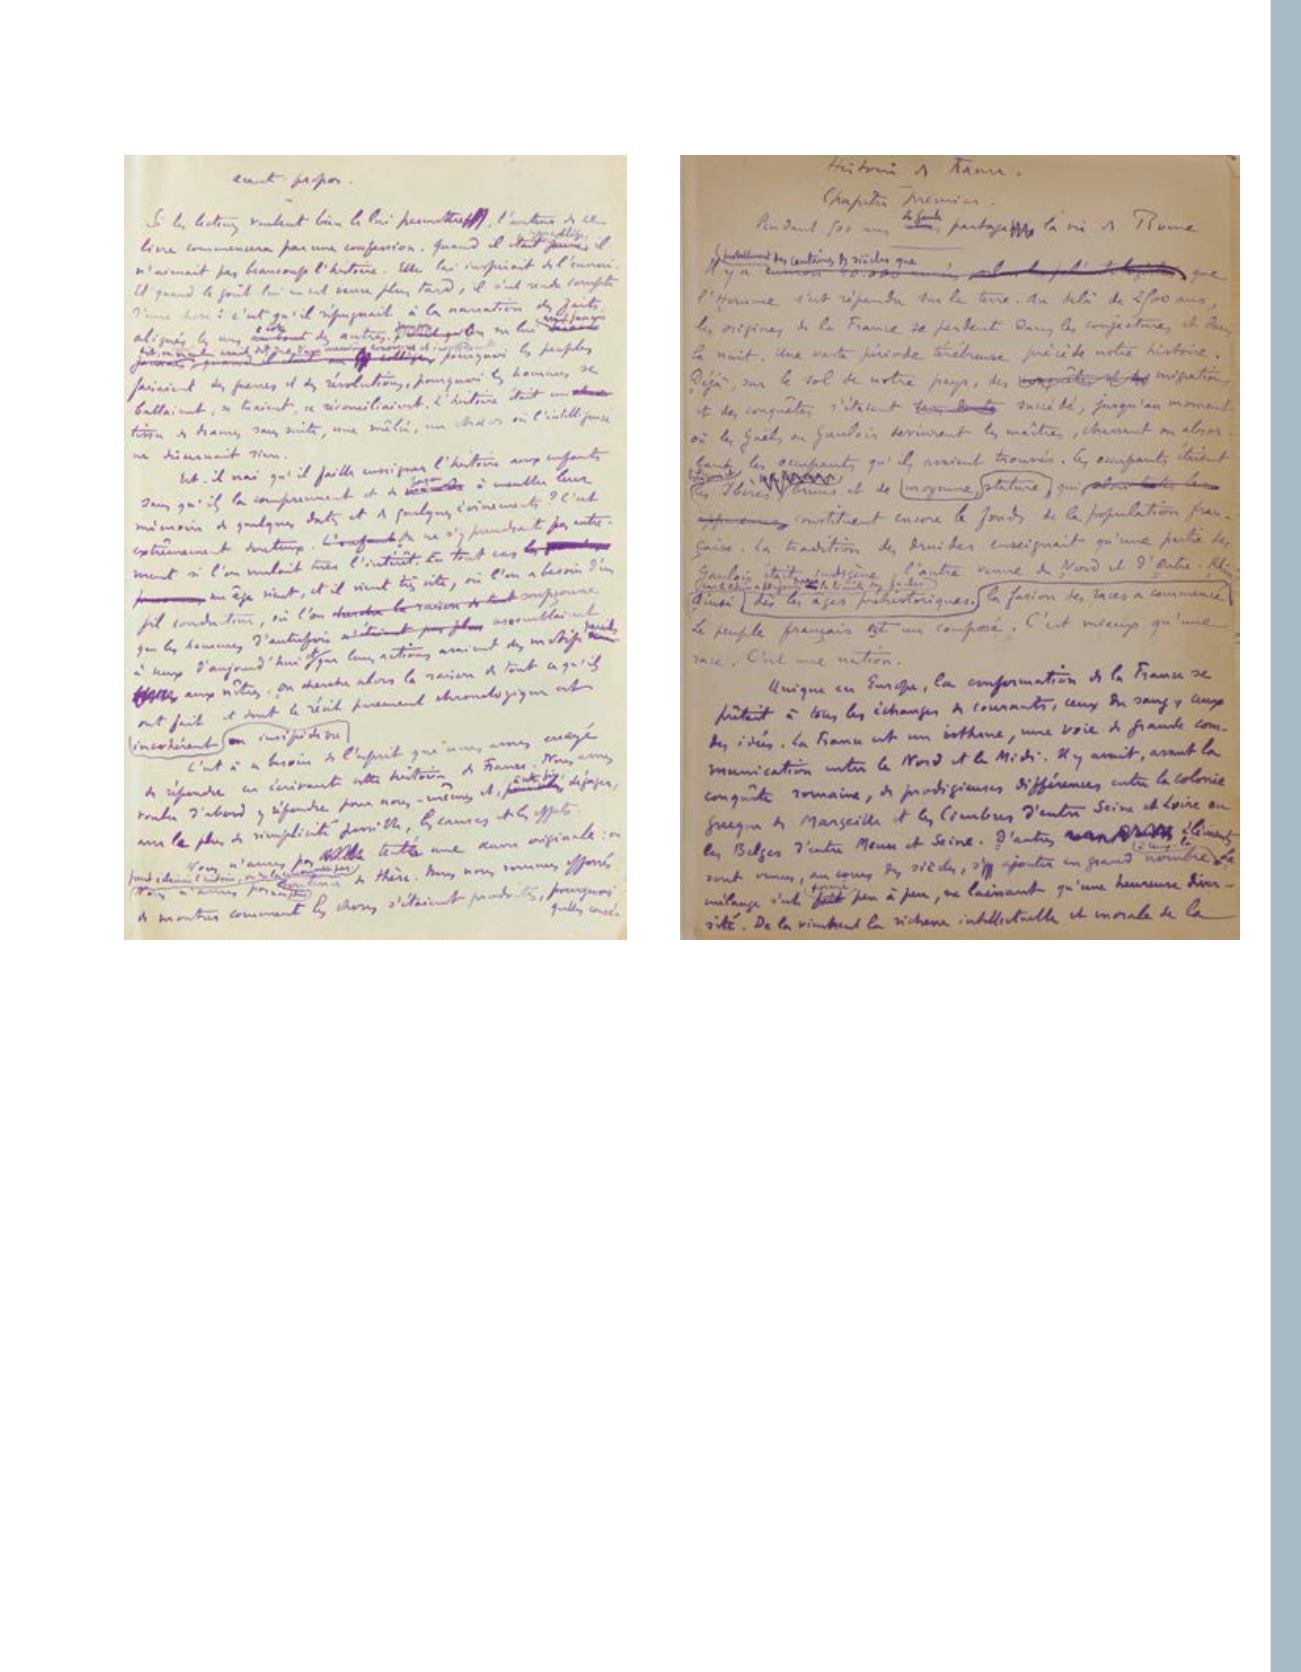 avant propos.
Si les lecteurs veulent bien le lui permettre, l'auteur de ce
livre commencera par une confession. Quand il était il
n'aimait pas beaucoup l'histoire. Elle lui inspirait de l'ennui.
Et quand le goût lui en est venu plus tard, il s'est rendu compte
d'une chose : c'est qu'il répugnait à la narration des faits
alignés les uns des autres.
pourquoi les peuples
faisaient des guerres et des révolutions, pourquoi les hommes se
battaient, se tuaient, se réconciliaient. L'histoire était un
tissu de drames sans suite, une mêlée, un chaos où l'intelligence
ne discernait rien.
Est-il vrai qu'il faille enseigner l'histoire aux enfants
sans qu'ils la comprennent et de façon à meubler leur
mémoire de quelques dates et de quelques évènements ? C'est
extrêmement douteux. On ne s'y prendrait pas autre-
ment si l'on voulait tuer l'intérêt. En tout cas
un âge vient, et il vient très vite, où l'on a besoin d'un
fil conducteur, où l'on soupçonne
que les hommes d'autrefois ressemblaient
à ceux d'aujourd'hui et que leurs actions avaient des motifs pareils
aux nôtres. On cherche alors la raison de tout ce qu'ils
ont fait et dont le récit purement chronologique est
incohérent ou insipide
C'est à ce besoin de l'esprit que nous avons essayé
de répondre en écrivant cette histoire de France. Nous avons
voulu d'abord y répondre pour nous-mêmes et, dégager,
avec le plus de simplicité possible, les causes et les effets.
Nous n'avons pas tenté une œuvre originale : on
peut éclaircir l'histoire, on ne la renouvelle pas.
Nous n'avons pas soutenu de thèse. Nous nous sommes efforcé
de montrer comment les choses s'étaient produites, pourquoi
quelles conséq
Histoire de France.
Chapitre premier.
Pendant 500 ans la Gaule partage la vie de Rome
probablement des centaines de siècles que
Il y a environ 40.000 années que
l'Homme s'est répandu sur la terre. Au delà de 2500 ans,
les origines de la France se perdent dans les conjectures et dans
la nuit. Une vaste période ténébreuse précède notre histoire.
Déjà, sur le sol de notre pays, des migrations
et des conquêtes s'étaient succédé, jusqu'au moment
où les Gaëls ou Gaulois devinrent les maîtres, chassant ou absor-
bant les occupants qu'ils avaient trouvés. Ces occupants étaient
les Ibères, bruns et de moyenne stature, qui
constituent encore le fonds de la population fran-
çaise. La tradition des druides enseignait qu'une partie des
Gaulois était indigène, l'autre venue du Nord et d'Outre-Rh
Ainsi dès les âges préhistoriques. la fusion des races a commencé
Le peuple français est un composé. C'est mieux qu'une
race. C'est une nation.
Unique en Europe, la conformation de la France se
prêtait à tous les échanges de courants, ceux du sang, ceux
des idées. La France est un isthme, une voie de grande com-
munication entre le Nord et le Midi. Il y avait, avant la
conquête romaine, de prodigieuses différences entre la colonie
grecque de Marseille et les Cimbres d'entre Seine et Loire ou
les Belges d'entre Meuse et Seine. D'autres éléments
sont venus, au cours des siècles, s'y ajouter en grand nombre. Le
mélange s'est formé peu à peu, ne laissant qu'une heureuse diver-
sité. De là viennent la richesse intellectuelle et morale de la